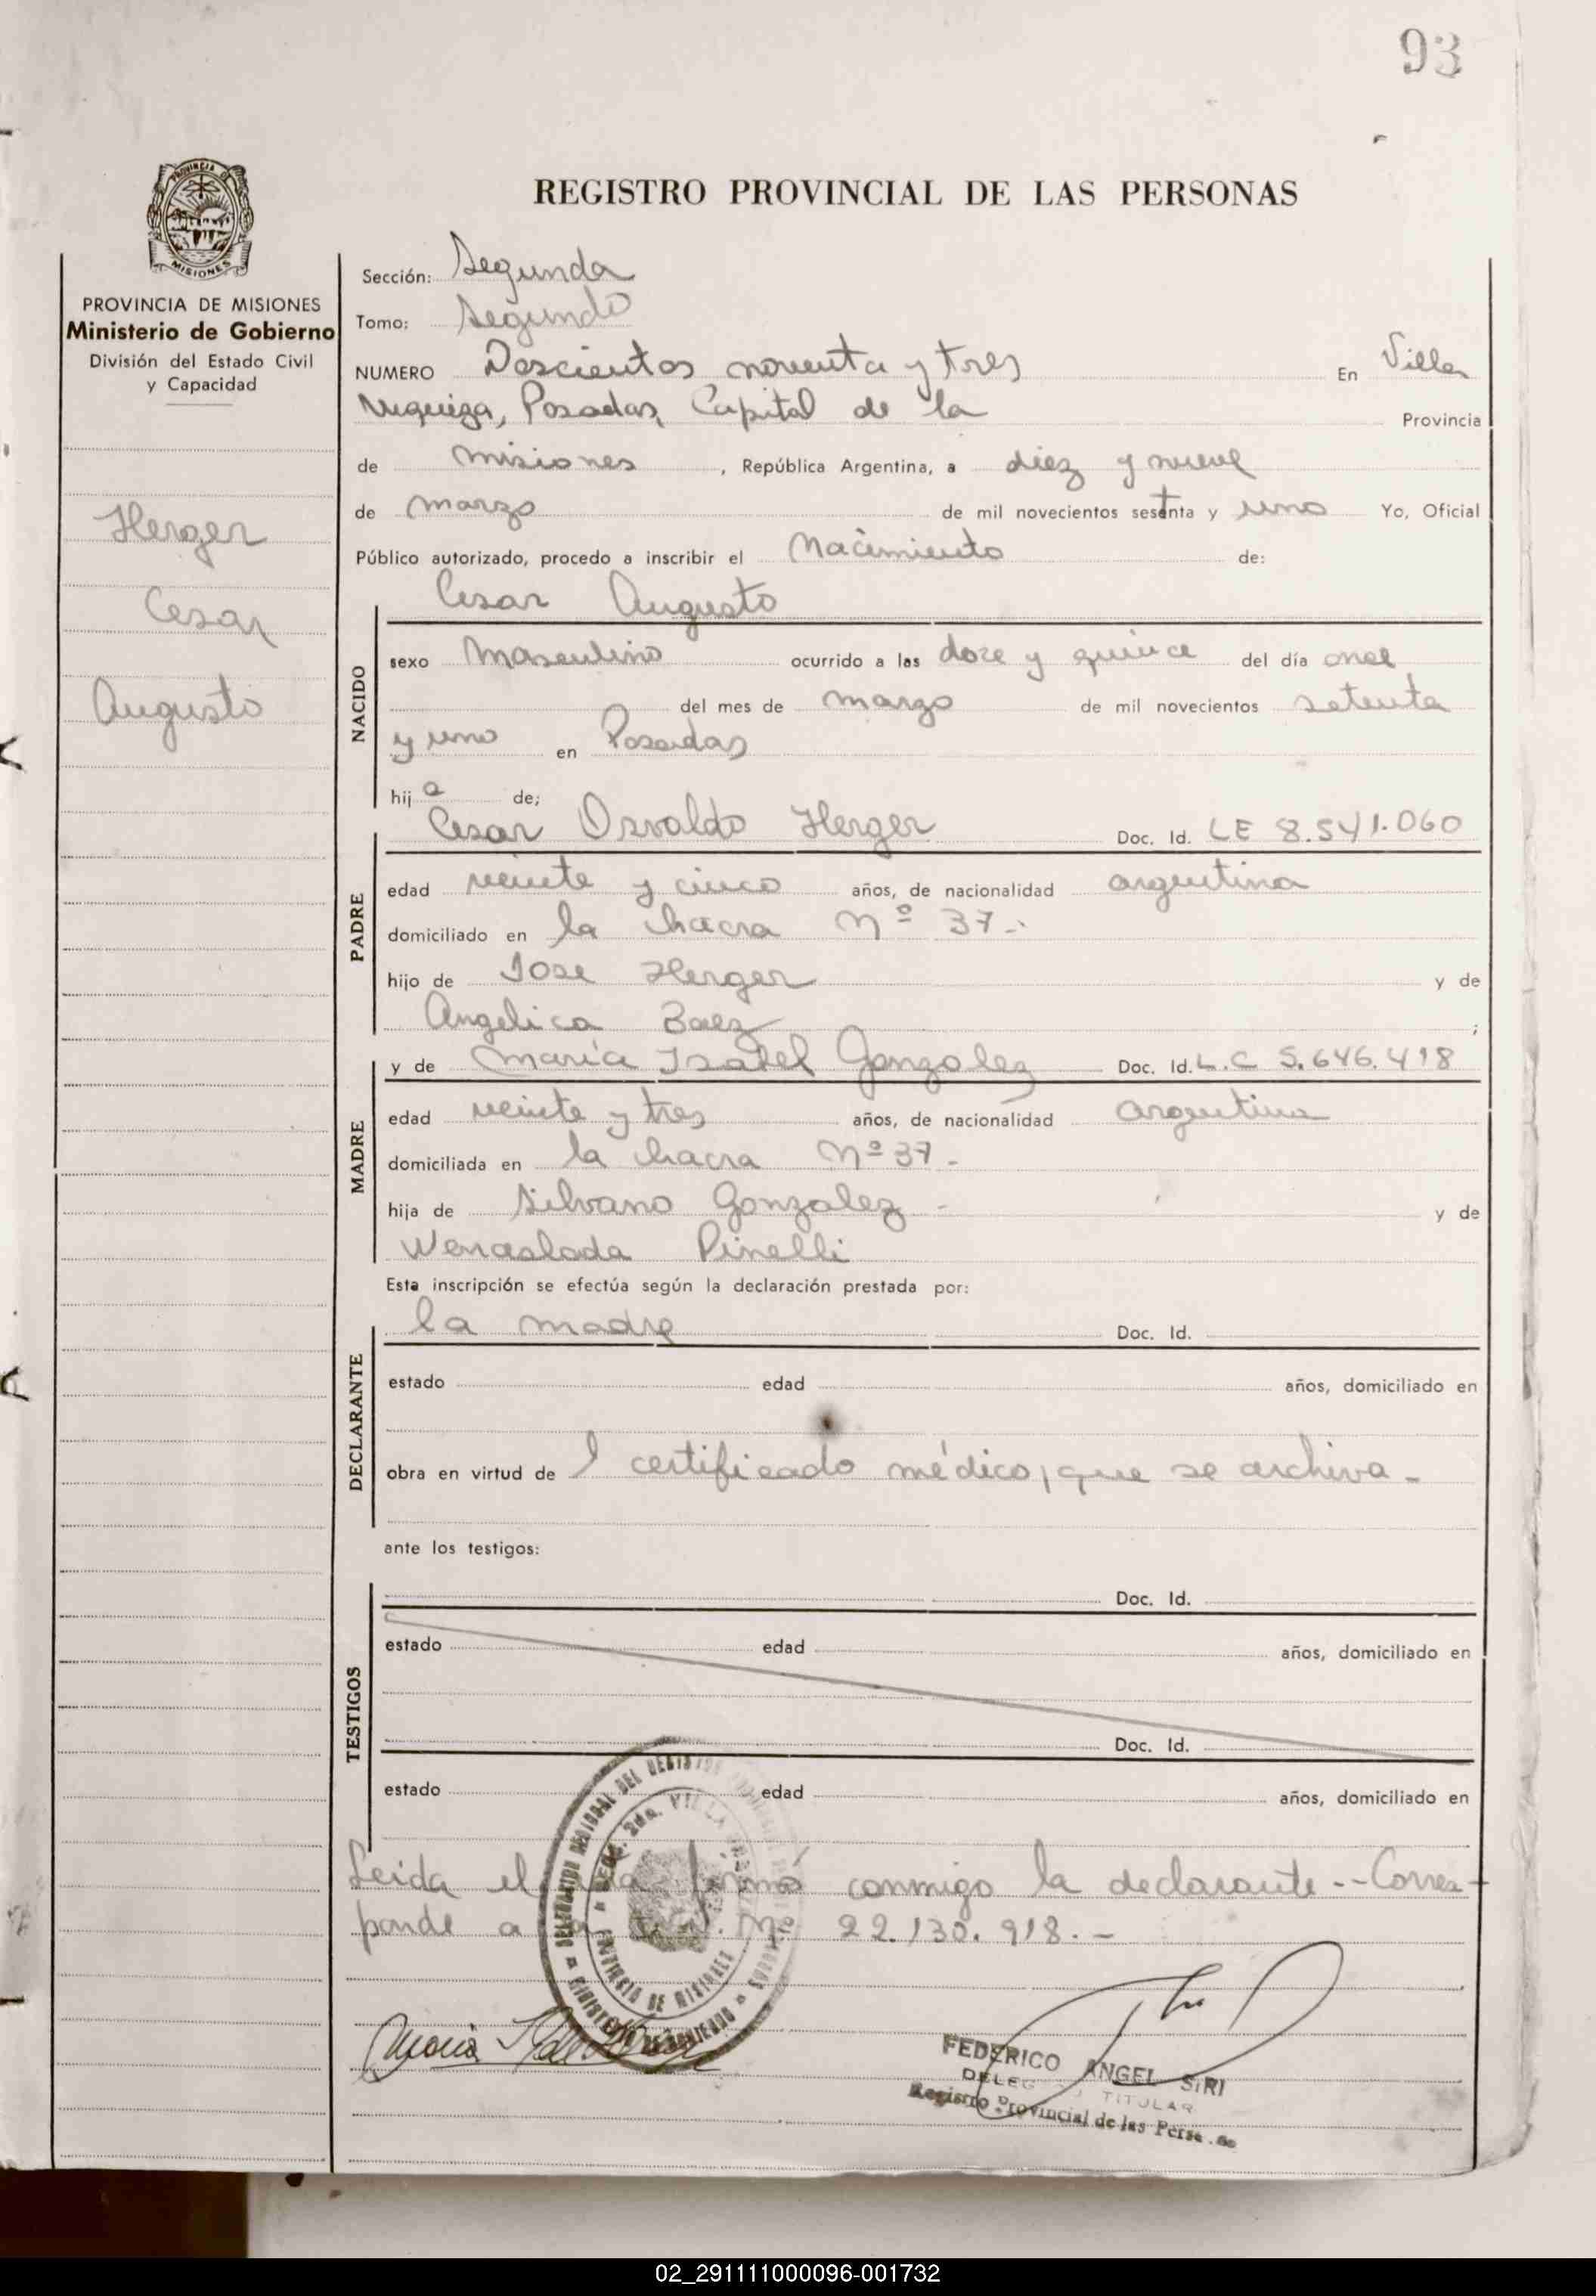 93
PROVINCIA DE
MISIONES
REGISTRO PROVINCIAL DE LAS PERSONAS
PROVINCIA DE MISIONES
Ministerio de Gobierno
División del Estado Civil
y Capacidad
Herger
Cesar
Augusto
Sección: Segunda
Tomo: Segundo
NUMERO Doscientos noventa y tres En Villa
Urquiza, Posadas, Capital de la Provincia
de misiones, República Argentina, a diez y nueve
de marzo de mil novecientos sesenta y uno Yo, Oficial
Público autorizado, procedo a inscribir el Nacimiento de:
NACIDO
Cesar Augusto
sexo Masculino ocurrido a las doze y quince del día once
del mes de marzo de mil novecientos setenta
y uno en Posadas
hij o de;
PADRE
Cesar Osvaldo Herger Doc. Id. LE 8.541.060
edad veinte y cinco años, de nacionalidad argentina
domiciliado en la chacra Nº 37-.
hijo de Jose Herger y de
Angelica Baez ;
MADRE
y de Maria Isabel Gonzalez Doc. Id. L.C 5.646.418
edad veinte y tres años, de nacionalidad argentina
domiciliada en la chacra Nº 37-
hija de Silvano Gonzalez - y de
Wenceslada Pinelli
Esta inscripción se efectúa según la declaración prestada por:
DECLARANTE
la madre Doc. Id.
estado edad años, domiciliado en
obra en virtud de 1 certificado médico, que se archiva-
ante los testigos:
TESTIGOS
Doc. Id.
estado edad años, domiciliado en
Doc. Id.
estado edad años, domiciliado en
Leida el firmó conmigo la declarante.--Corres-
ponde a Nº 22.130.918.-
PROVINCIA DE MISIONES
Maria
FEDERICO ANGEL SIRI
TITULAR
Registro Provincial de las
02_291111000096-001732